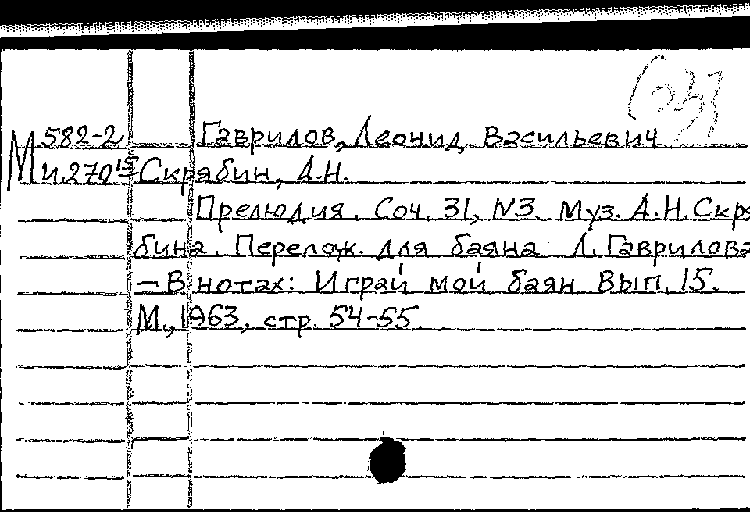 М 582-2 Гаврилов, Леонид Васильевич
И.270 15 Скрябин, А.Н.
Прелюдия. Соч. 31, N3. Муз. А.Н. Скря
бина. Перелож. для баяна Л. Гаврилова
- В нотах: Играй мой баян Вып. 15.
М., 1963, стр. 54-55.